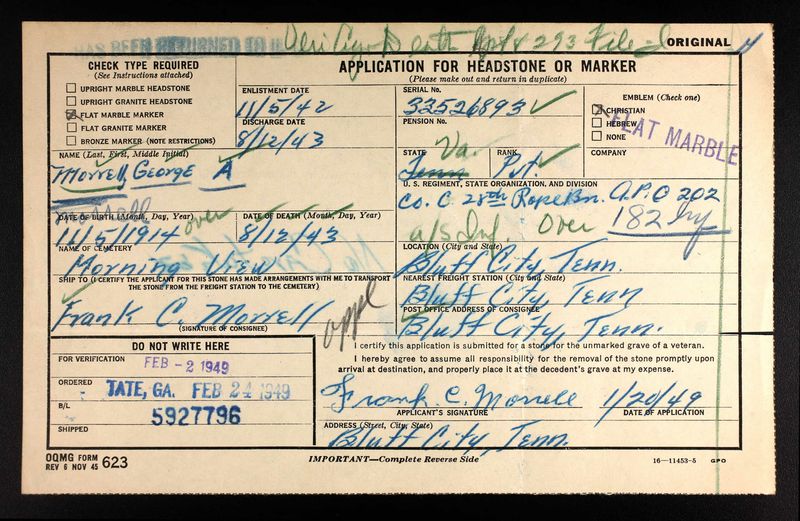 HAS BEEN RETURNED TO
Verify Death File
ORIGINAL
CHECK TYPE REQUIRED
(See Instructions attached)
UPRIGHT MARBLE HEADSTONE
UPRIGHT GRANITE HEADSTONE
FLAT MARBLE MARKER
FLAT GRANITE MARKER
BRONZE MARKER (NOTE RESTRICTIONS)
APPLICATION FOR HEADSTONE OR MARKER
(Please make out and return in duplicate)
ENLISTMENT DATE
11/5/42
DISCHARGE DATE
8/12/43
SERIAL No.
33526893
PENSION No.
EMBLEM (Check one)
CHRISTIAN
HEBREW
NONE
FLAT MARBLE
NAME (Last, First, Middle Initial)
Morrell, George A
STATE
Va.
Tenn
RANK
Pvt.
COMPANY
U. S. REGIMENT, STATE ORGANIZATION, AND DIVISION
Co. C. 28th Repl Bn. A.P.O 202
a/s Inf. Over 182 Inf
Morrell
DATE OF BIRTH (Month, Day, Year)
over
11/5/1914
DATE OF DEATH (Month, Day, Year)
8/12/43
NAME OF CEMETERY
Morning View
LOCATION (City and State)
Bluff City, Tenn.
SHIP TO (I CERTIFY THE APPLICANT FOR THIS STONE HAS MADE ARRANGEMENTS WITH ME TO TRANSPORT
THE STONE FROM THE FREIGHT STATION TO THE CEMETERY)
NEAREST FREIGHT STATION (City and State)
Bluff City, Tenn
Frank C. Morrell
(SIGNATURE OF CONSIGNEE)
appl
POST OFFICE ADDRESS OF CONSIGNEE
Bluff City, Tenn.
DO NOT WRITE HERE
FOR VERIFICATION
FEB -2 1949
ORDERED
TATE, GA. FEB 24 1949
B/L
5927796
SHIPPED
I certify this application is submitted for a stone for the unmarked grave of a veteran.
I hereby agree to assume all responsibility for the removal of the stone promptly upon
arrival at destination, and properly place it at the decedent's grave at my expense.
Frank C. Morrell 1/20/49
APPLICANT'S SIGNATURE DATE OF APPLICATION
ADDRESS (Street, City, State)
Bluff City, Tenn.
OQMG FORM
REV 6 NOV 45 623
IMPORTANT—Complete Reverse Side
16—11453-5 GPO